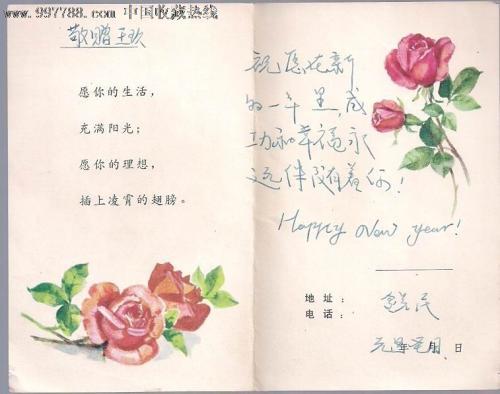 www.997788.com 中国收藏热线
敬赠王玖
愿你的生活，
充满阳光；
愿你的理想，
插上凌霄的翅膀。
祝愿在新
的一年里，成
功和幸福永
远伴随着你！
Happy New year!
地 址：
电 话：
元 年 月 日